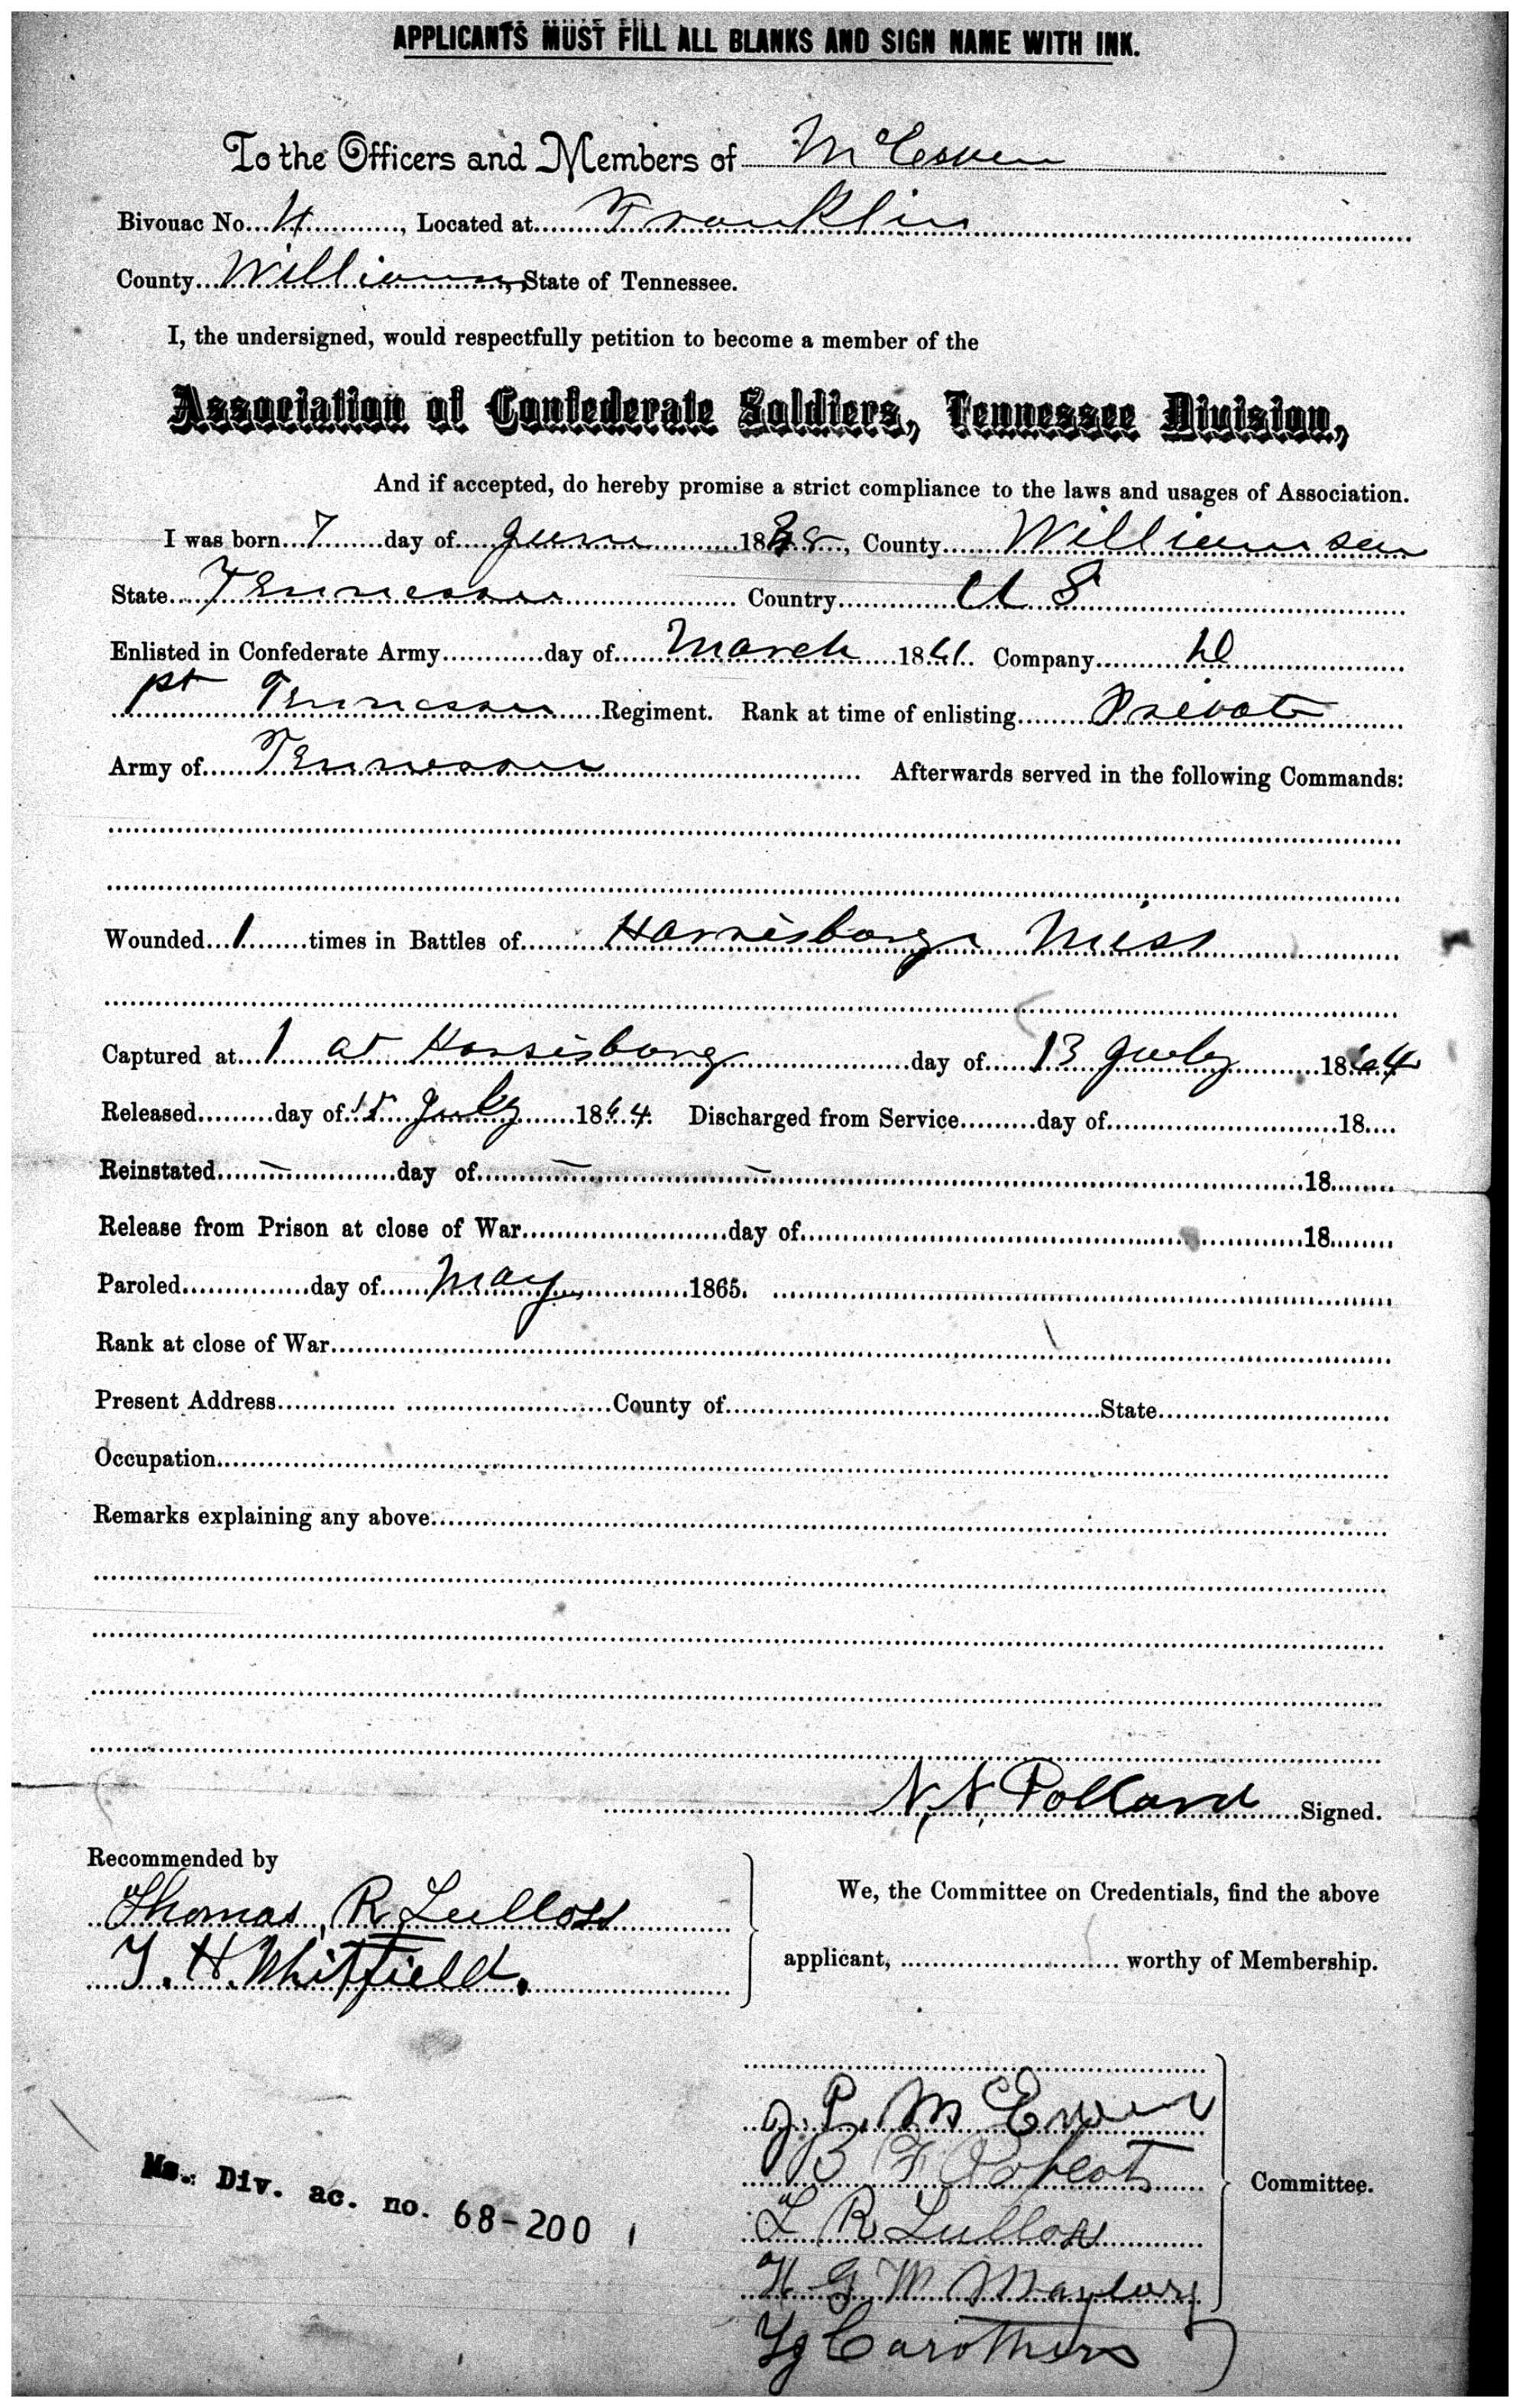 APPLICANTS MUST FILL ALL BLANKS AND SIGN NAME WITH INK.
To the Officers and Members of McEwen
Bivouac No. 4, Located at Franklin
County Williamson, State of Tennessee.
I, the undersigned, would respectfully petition to become a member of the
Association of Confederate Soldiers, Tennessee Division,
And if accepted, do hereby promise a strict compliance to the laws and usages of Association.
I was born 7 day of June 1838, County Williamson
State Tennessee Country U S
Enlisted in Confederate Army day of March 1861 Company D
Tennessee Regiment. Rank at time of enlisting Private
Army of Tennessee Afterwards served in the following Commands:
Wounded 1 times in Battles of Harrisburg Miss
Captured at 1 at Harrisburg day of 13 July 1864
Released day of 15 July 1864. Discharged from Service day of 18
Reinstated — day of — — 18
Release from Prison at close of War day of 18
Paroled day of May 1865.
Rank at close of War
Present Address County of State
Occupation
Remarks explaining any above
N. N. Pollard Signed.
Recommended by
Thomas R Lulloss
T. H. Whitfield.
We, the Committee on Credentials, find the above
applicant, worthy of Membership.
J. P. McEwen
B F Roberts
L R Lulloss
G W
Carothers
Committee.
Ms. Div. ac. no. 68-200